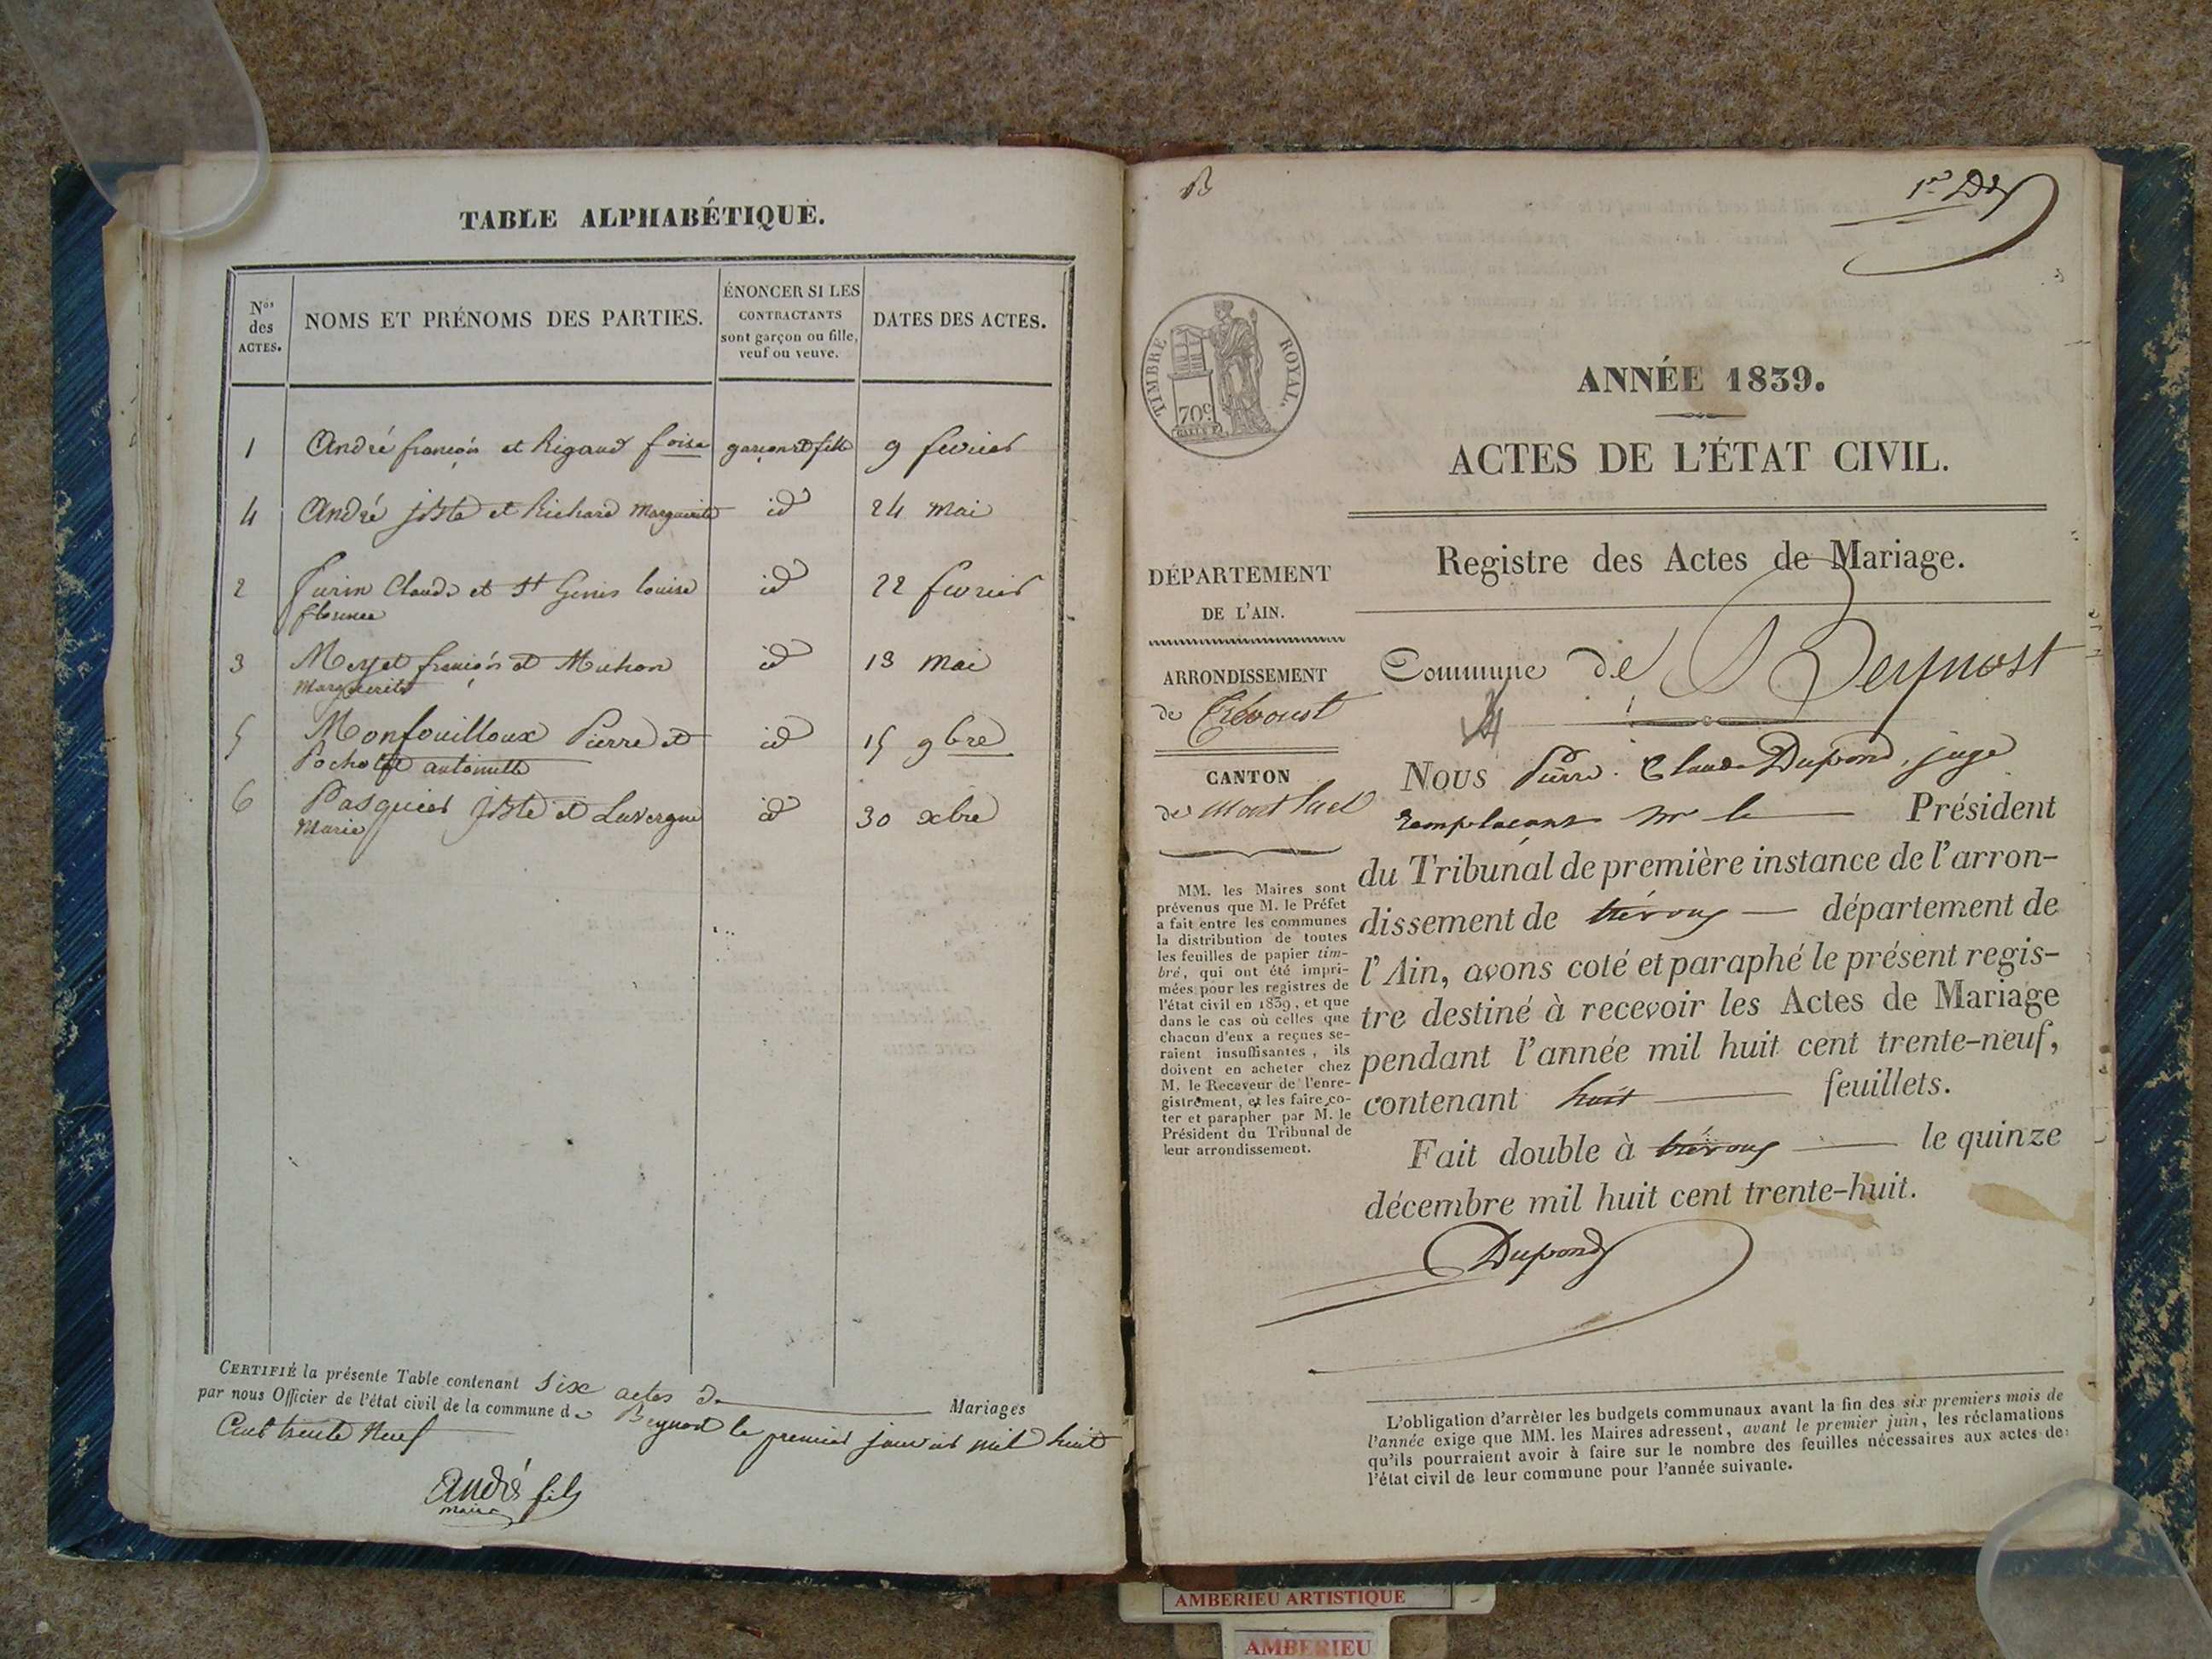 TABLE ALPHABÉTIQUE.
Nos des ACTES.
NOMS ET PRÉNOMS DES PARTIES.
ÉNONCER SI LES
CONTRACTANTS
sont garçon ou fille,
veuf ou veuve.
DATES DES ACTES.
1 André françois et Rigaud foise garçon et fille 9 fevrier
4 André jbte et Richard Marguerite id 24 Mai
2 Claude et St Genis louise id 22 fevrier
florence
3 Meyet françois et Michon id 13 Mai
Marguerite
5 Monfouilloux Pierre et id 15 9bre
antoinette
6 Pasquier jbte et Lavergne id 30 xbre
Marie
CERTIFIÉ la présente Table contenant Six actes de Mariages
par nous Officier de l'état civil de la commune de Beynost le premier janvier mil huit
Cent trente Neuf
André fils
maire
1er
TIMBRE ROYAL.
70c
ANNÉE 1839.
ACTES DE L'ÉTAT CIVIL.
Registre des Actes de Mariage.
DÉPARTEMENT
DE L'AIN.
ARRONDISSEMENT
de Trévoust
CANTON
de Montluel
MM. les Maires sont
prévenus que M. le Préfet
a fait entre les communes
la distribution de toutes
les feuilles de papier tim-
bré, qui ont été impri-
mées pour les registres de
l'état civil en 1839, et que
dans le cas où celles que
chacun d'eux a reçues se-
raient insuffisantes, ils
doivent en acheter chez
M. le Receveur de l'enre-
gistrement, et les faire co-
ter et parapher par M. le
Président du Tribunal de
leur arrondissement.
Commune de Beynost
Nous Pierre Claude Dupond, juge
remplaçant Mr le Président
du Tribunal de première instance de l'arron-
dissement de trévoux département de
l'Ain, avons coté et paraphé le présent regis-
tre destiné à recevoir les Actes de Mariage
pendant l'année mil huit cent trente-neuf,
contenant huit feuillets.
Fait double à trévoux le quinze
décembre mil huit cent trente-huit.
Dupond
L'obligation d'arrêter les budgets communaux avant la fin des six premiers mois de
l'année exige que MM. les Maires adressent, avant le premier juin, les réclamations
qu'ils pourraient avoir à faire sur le nombre des feuilles nécessaires aux actes de
l'état civil de leur commune pour l'année suivante.
AMBERIEU ARTISTIQUE
AMBERIEU